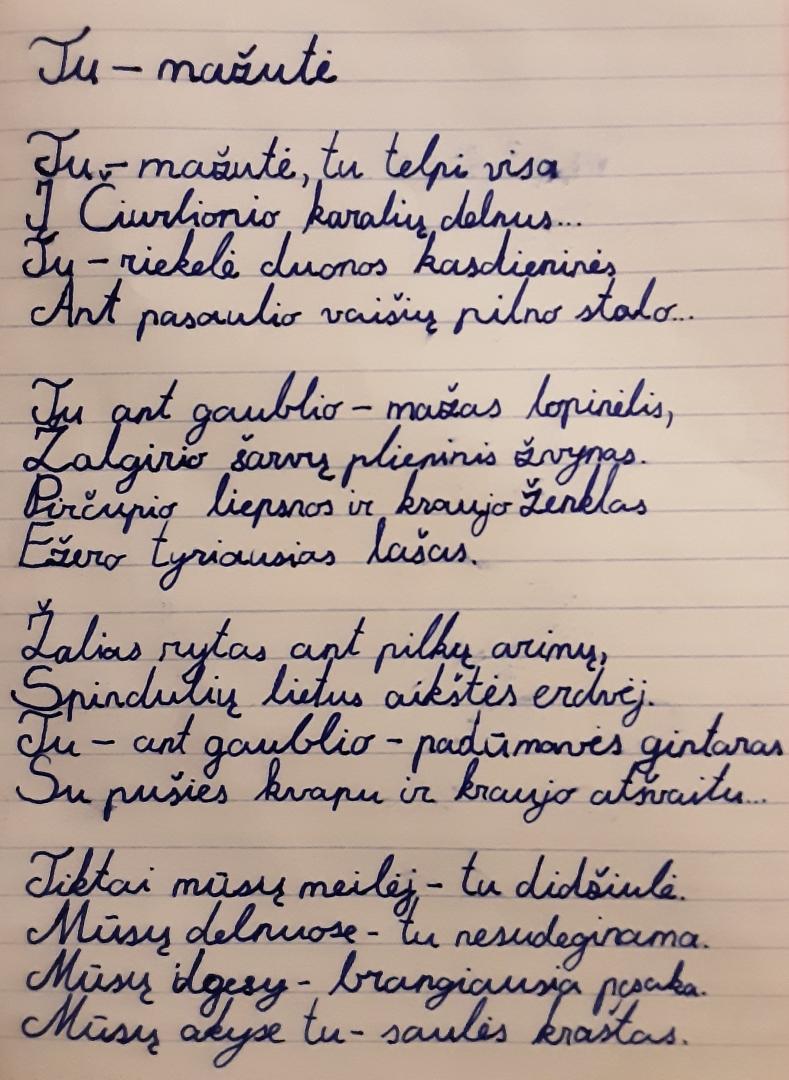 Tu – mažutė
Tu – mažutė, tu telpi visa
Į Čiurlionio karalių delnus...
Tu – riekelė duonos kasdieninės
Ant pasaulio vaišių pilno stalo...
Tu ant gaublio – mažas lopinėlis,
Žalgirio šarvų plieninis žvynas.
Pirčupio liepsnos ir kraujo ženklas
Ežero tyriausias lašas.
Žalias rytas ant pilkų arimų,
Spindulių lietus aikštės erdvėj.
Tu – ant gaublio – padūmavęs gintaras
Su pušies kvapu ir kraujo atšvaitu...
Tiktai mūsų meilėj – tu didžiulė.
Mūsų delnuose – tu nesudeginama.
Mūsų ilgesy – brangiausia pasaka.
Mūsų akyse tu – saulės kraštas.